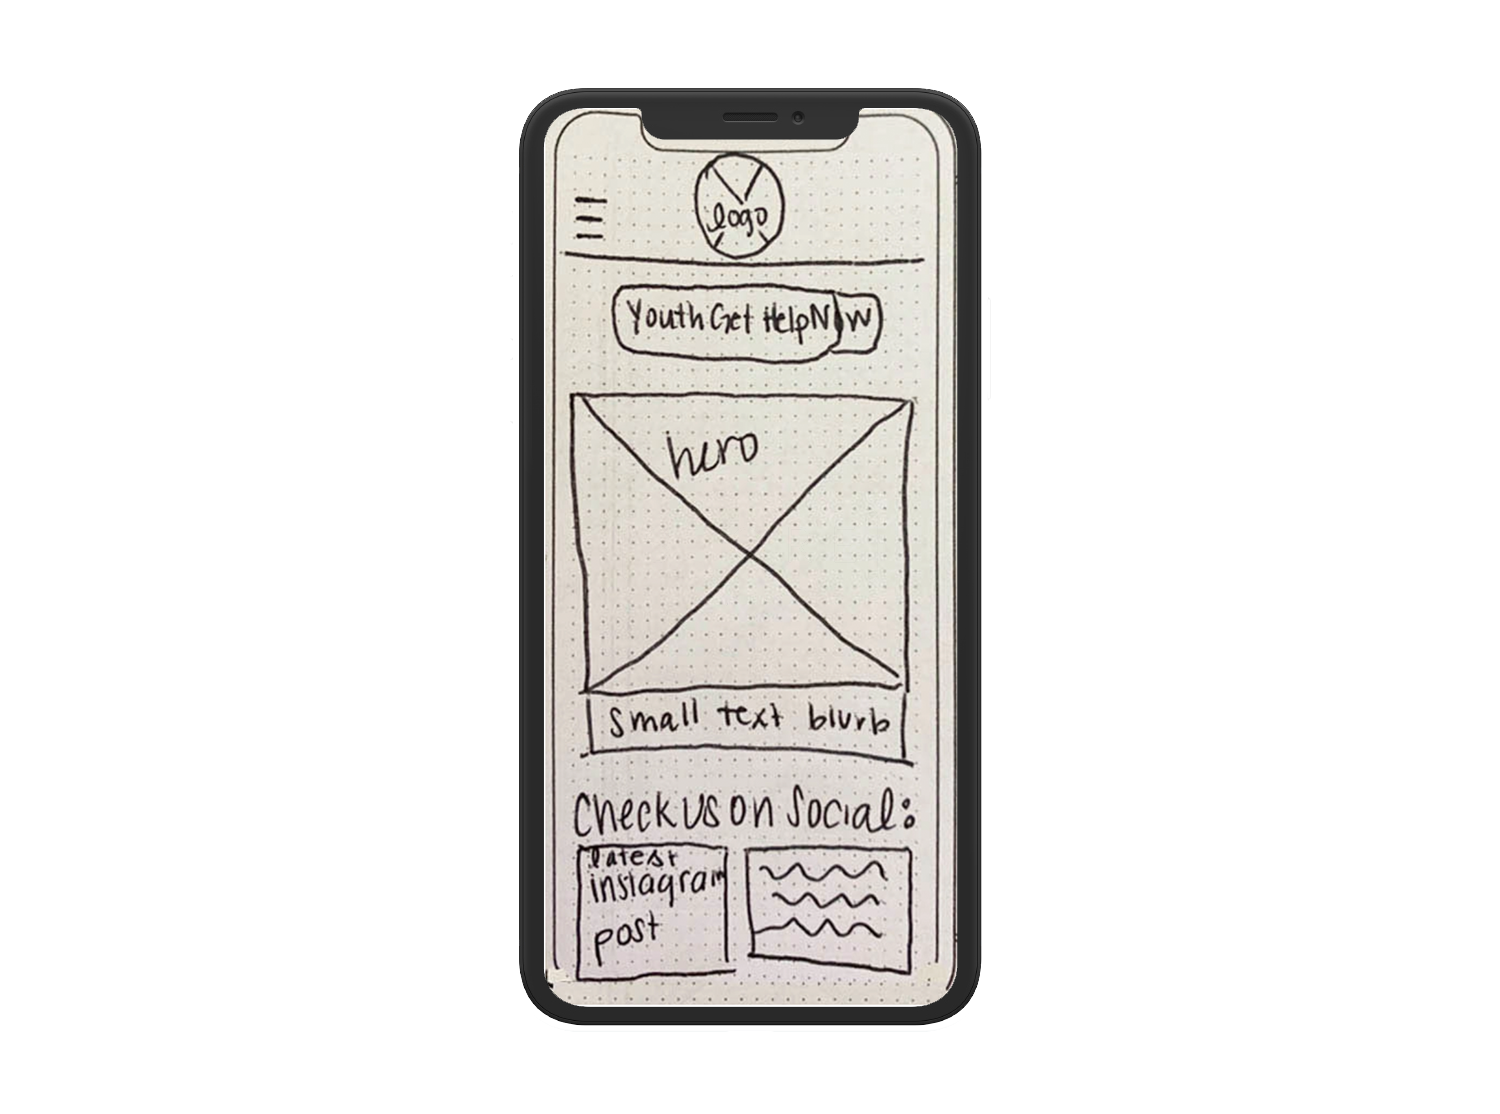 logo
Youth Get Help Now
hero
small text blurb
Check us on Social:
latest
instagram
post